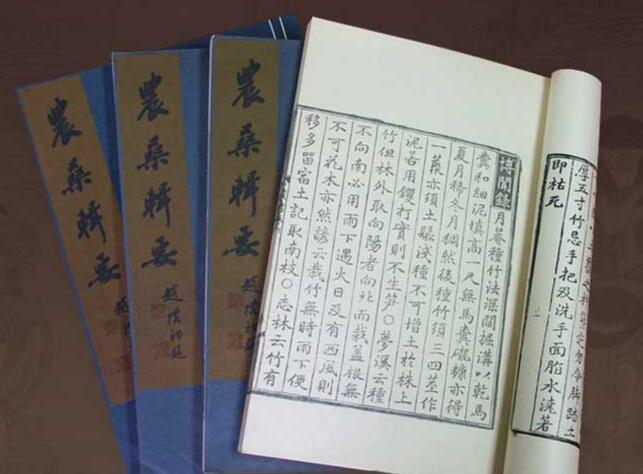 勿令脚踏土
厚五寸竹忌手把及洗手面脂水澆著
即枯死
博聞錄月菴種竹法深闊掘溝以乾馬
糞和細泥填高一尺無馬糞礱糠亦得
夏月稀冬月稠然後種竹須三四莖作
一蔟亦須土鬆淺種不可增土於株上
泥若用钁打實則不生笋○夢溪云種
竹但林外取向陽者向北而栽蓋根無
不向南必用雨下遇火日及有西風則
不可花木亦然諺云栽竹無時雨下便
移多留宿土記取南枝○志林云竹有
農桑輯要
趙樸初題
農桑輯要
趙樸初題
農桑輯要
趙